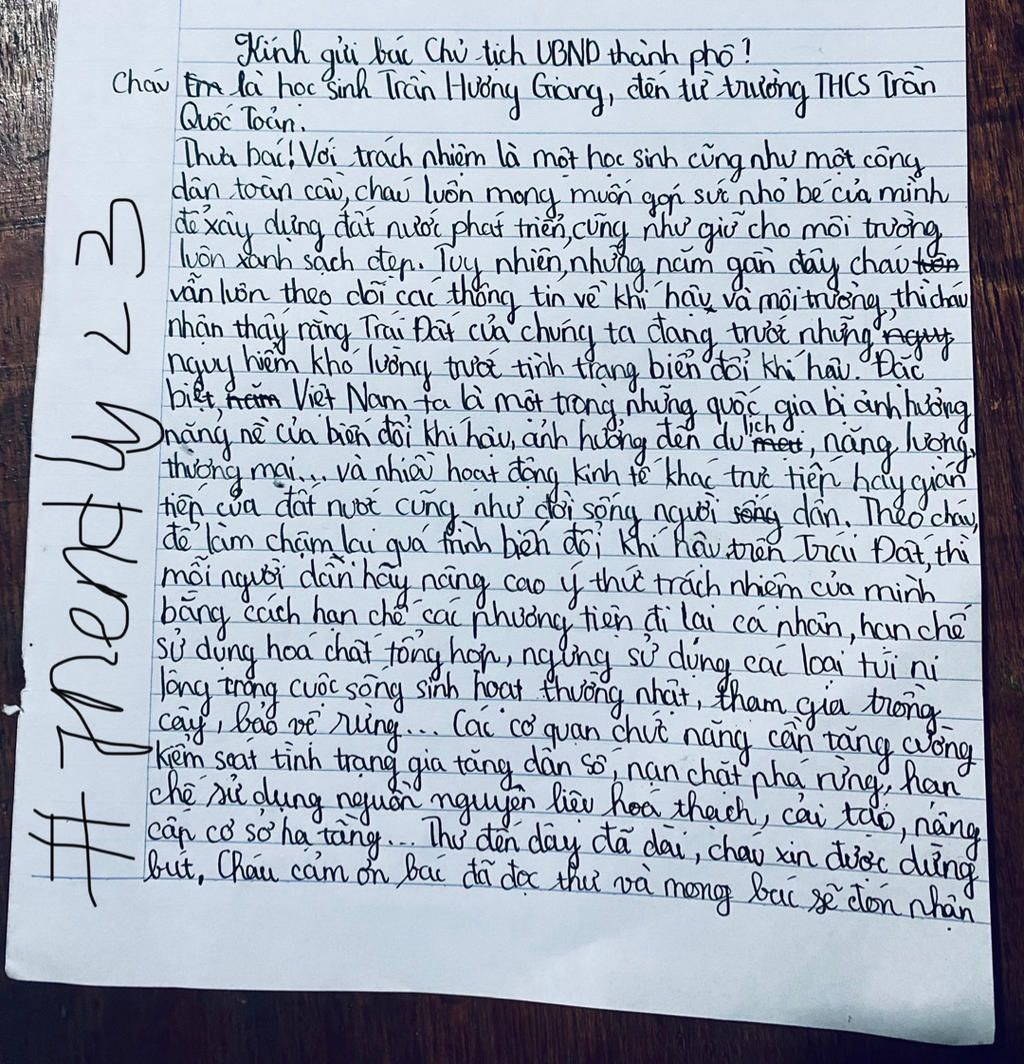 Kính gửi bác Chủ tịch UBND thành phố!
Cháu Em là học sinh Trần Hương Giang, đến từ trường THCS Trần
Quốc Toản.
Thưa bác! Với trách nhiệm là một học sinh cũng như một công
dân toàn cầu, cháu luôn mong muốn góp sức nhỏ bé của mình
để xây dựng đất nước phát triển, cũng như giữ cho môi trường
luôn xanh sạch đẹp. Tuy nhiên, những năm gần đây cháu luôn
vẫn luôn theo dõi các thông tin về khí hậu và môi trường, thì cháu
nhận thấy rằng Trái Đất của chúng ta đang trước những nguy
nguy hiểm khó lường trước tình trạng biến đổi khí hậu. Đặc
biệt, năm Việt Nam ta là một trong những quốc gia bị ảnh hưởng
nặng nề của biến đổi khí hậu, ảnh hưởng đến du lịch, năng lượng,
thương mại... và nhiều hoạt động kinh tế khác trực tiếp hay gián
tiếp của đất nước cũng như đời sống người sống dân. Theo cháu,
để làm chậm lại quá trình biến đổi khí hậu trên Trái Đất, thì
mỗi người dân hãy nâng cao ý thức trách nhiệm của mình
bằng cách hạn chế các phương tiện đi lại cá nhân, hạn chế
sử dụng hoá chất tổng hợp, ngừng sử dụng các loại túi ni
lông trong cuộc sống sinh hoạt thường nhật, tham gia trồng
cây, bảo vệ rừng... Các cơ quan chức năng cần tăng cường
kiểm soát tình trạng gia tăng dân số, nạn chặt phá rừng, hạn
chế sử dụng nguồn nguyên liệu hoá thạch, cải tạo, nâng
cấp cơ sở hạ tầng... Thư đến đây đã dài, cháu xin được dừng
bút. Cháu cảm ơn bác đã đọc thư và mong bác sẽ đón nhận